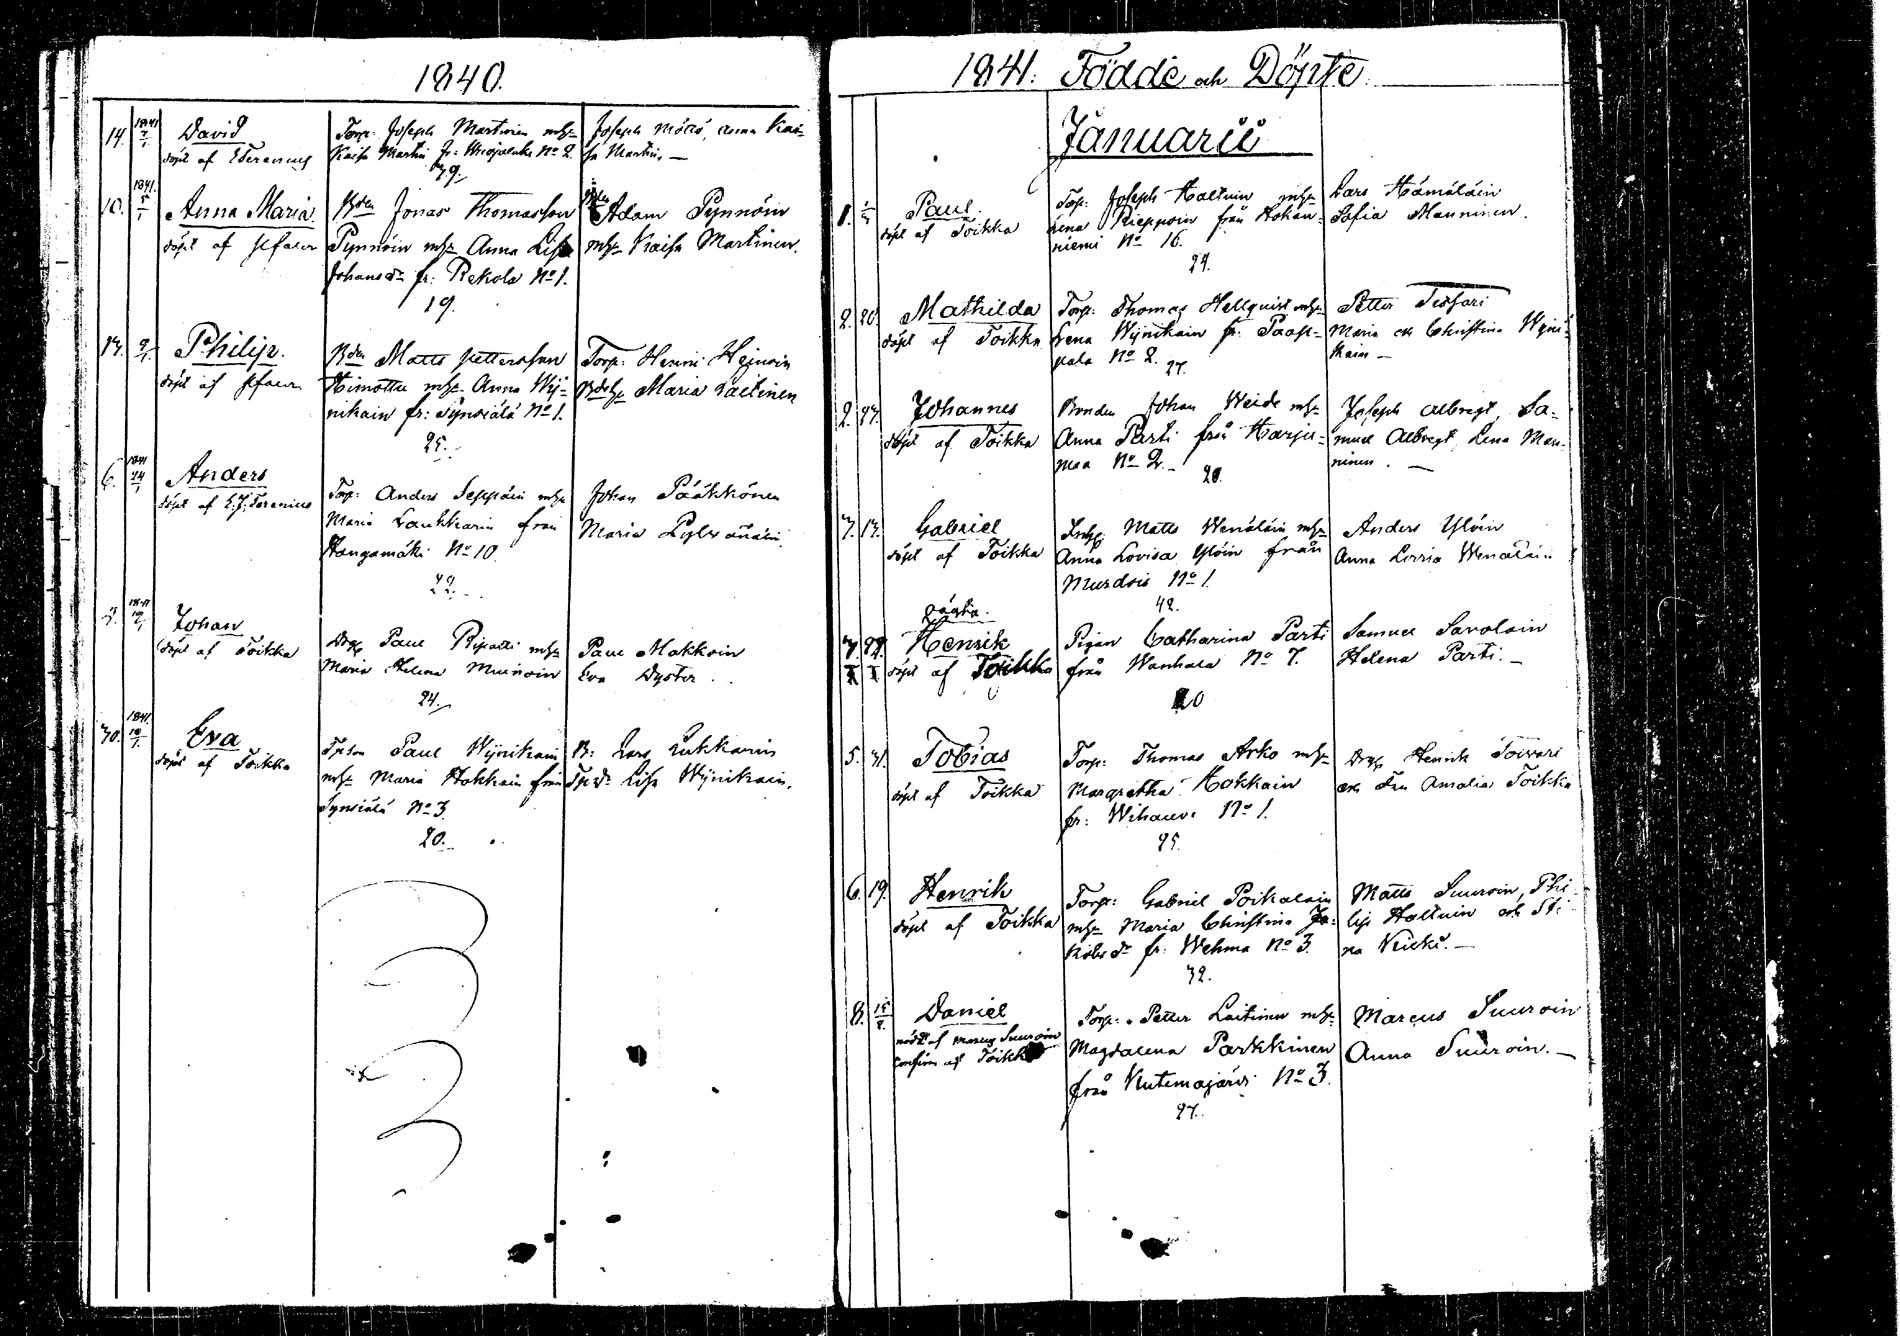 1840.
14. 1841 7/1 David
döpt af
Torp: Joseph Martinen m/h
Kaisa Martin fr: No 2.
39.
Joseph Mörö, Anna Kai-
sa Martin. —
10. 1841. 5/1 Anna Maria
döpt af
Bdn Jonas Thomasson
Pynnöin m/h Anna Lisa
Johansdr fr: Rekola No 1.
19.
Bdn Adam Pynnöin
m/h Kaisa Martinen.
17. 9/1 Philip.
döpt af
Bdn Matts Pettersson
Himottu m/h Anna Wij-
nikain fr: Synsiälä No 1.
25.
Torp: Henric Heinoin
Maria Laitinen
6. 1841 24/1 Anders
döpt af E. J. Ferenius
Torp: Anders Seppäin m/h
Maria Laukkarin från
Hangamäki No 10.
22.
Johan Pääkkönen
Maria
1841 Johan
döpt af Toikka
Drg Paul Ripatti m/h
Maria Helena Muinoin
24.
Paul Makkoin
Eva Dyster.
30. 1841. 10/1. Eva
döpt af Toikka
Paul Wijnikain
m/h Maria Hokkain från
Synsiälä No 3.
20.
B: Lars Lukkarin
Lisa Wijnikain.
1841. Födde och Döpte
Januarii
1. Paul
döpt af Toikka
Torp: Joseph Haltuin m/h
Lena Rieppoin från Hokan-
niemi No 16.
24.
Lars Hämäläin
Sofia Manninen.
2. 20. Mathilda
döpt af Toikka
Torp: Thomas Hellquist m/h
Lena Wijnikain fr: Paap-
pala No 2.
27.
Petter Tissari
Maria och Christina Wijni-
kain —
2. 27. Johannes
döpt af Toikka
Bonden Johan Weide m/h
Anna Parti från Harju-
maa No 2. —
20.
Joseph Albregt, Sa-
muel Albregt, Lena Man-
ninen. —
7. 17. Gabriel
döpt af Toikka
Inhg Matts Wenäläin m/h
Anna Lovisa Ylöin från
Murdois No 1.
42.
Anders Ylöin
Anna Lovisa Wenäläin
oägta.
7. Henrik
döpt af Toikka
Pigan Catharina Parti
från Wanhala No 7.
20
Samuel Savolain
Helena Parti. —
5. 31. Tobias
döpt af Toikka
Torp: Thomas Arko m/h
Margretha Hokkain
fr: No 1.
25.
Drg Henrik Toivari
och Fru Amalia Toikka
6. 19. Henrik
döpt af Toikka
Torp: Gabriel Poikalain
m/h Maria Christina Ja-
kobsdr fr: Wehma No 3.
32.
Matts Suuroin, Phi-
lip Haltuin och Sti-
na Veicki. —
8. 15/2. Daniel
nöddt af Marcus Suuroin
confirm af Toikka
Torp: Petter Laitinen m/h
Magdalena Parkkinen
från Kutemajärvi No 3.
27.
Marcus Suuroin
Anna Suuroin. —